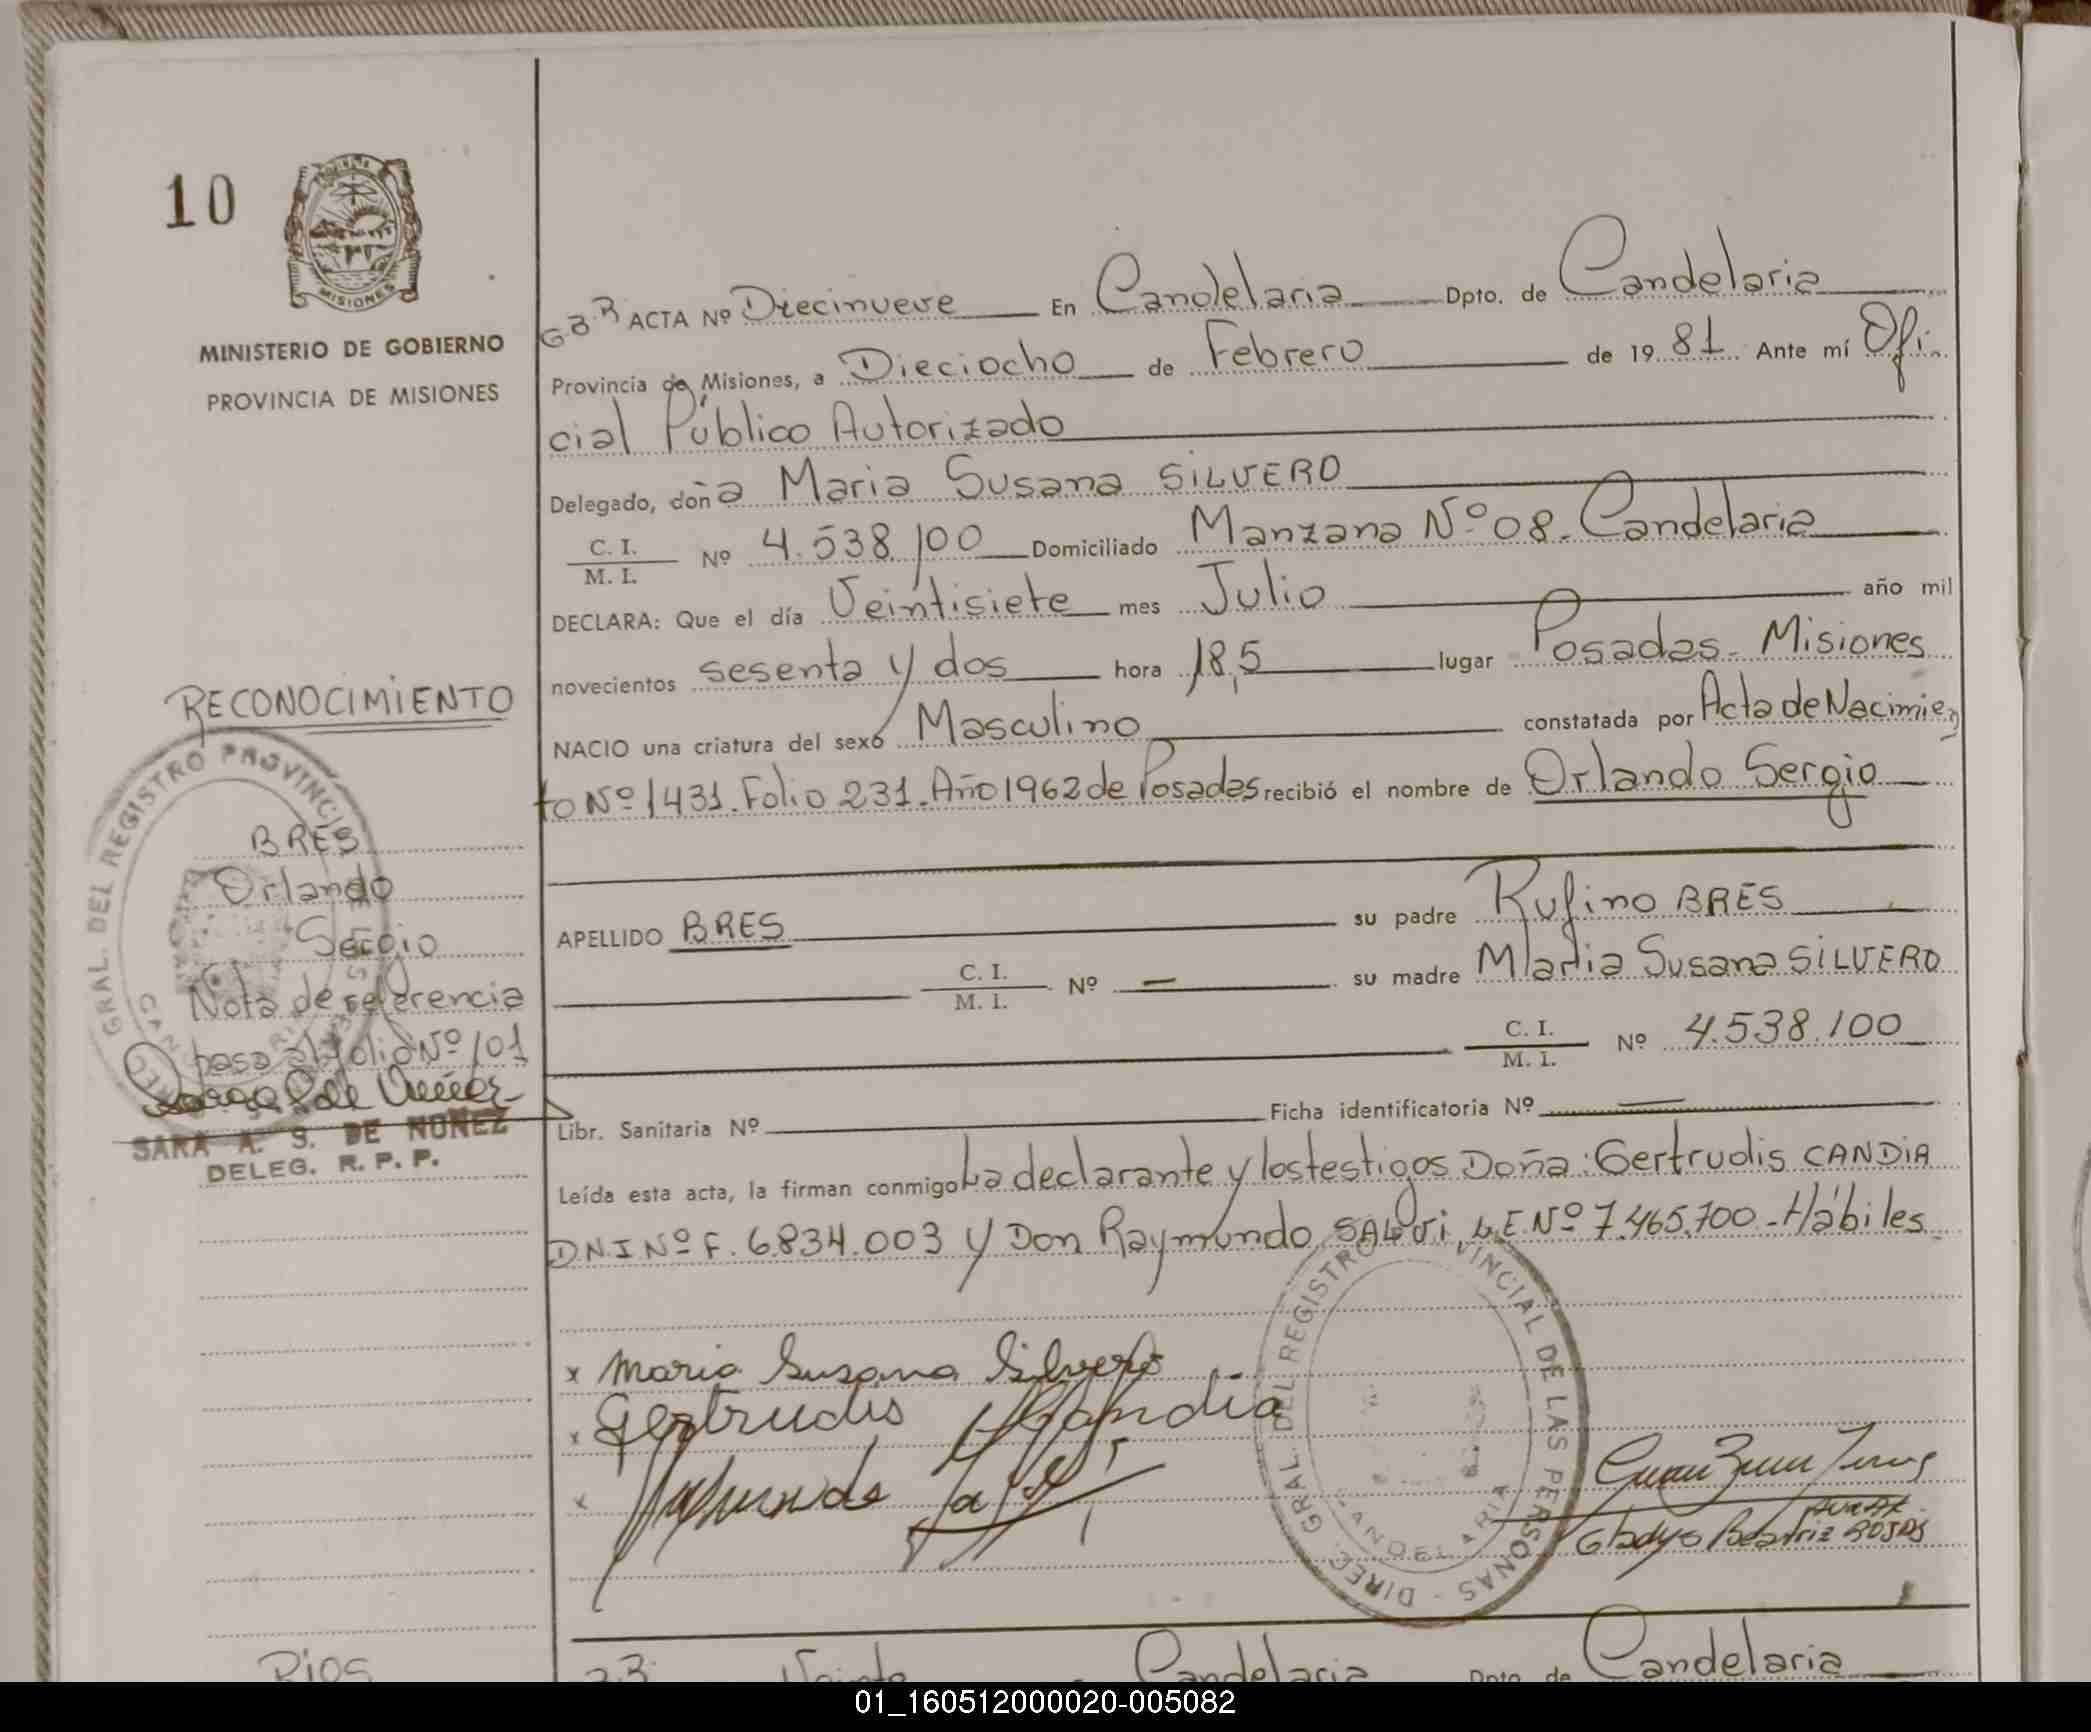 10
MISIONES
MINISTERIO DE GOBIERNO
PROVINCIA DE MISIONES
RECONOCIMIENTO
BRES
Orlando
Sergio
Nota de referencia
pasa al folio Nº 101
SARA A. S. DE NUÑEZ
DELEG. R. P. P.
G.B.R ACTA Nº Diecinueve En Candelaria Dpto. de Candelaria
Provincia de Misiones, a Dieciocho de Febrero de 1981 Ante mí Ofi
cial Público Autorizado
Delegado, doña Maria Susana SILVERO
C. I.
M. I. Nº 4.538.100 Domiciliado Manzana Nº 08 - Candelaria
DECLARA: Que el día Veintisiete mes Julio año mil
novecientos sesenta y dos hora 18,5 lugar Posadas - Misiones
NACIO una criatura del sexo Masculino constatada por Acta de Nacimien
to Nº 1431. Folio 231. Año 1962 de Posadas recibió el nombre de Orlando Sergio
APELLIDO BRES su padre Rufino BRES
C. I.
M. I. Nº — su madre Maria Susana SILVERO
C. I.
M. I. Nº 4.538.100
Libr. Sanitaria Nº Ficha identificatoria Nº
Leída esta acta, la firman conmigo La declarante y los testigos Doña: Gertrudis CANDIA
DNI Nº F. 6.834.003 y Don Raymundo SALVI, L.E. Nº 7.465.700 - Hábiles
x Maria Susana Silvero
x Gertrudis Candia
x
DIREC. GRAL. DEL REGISTRO PROVINCIAL DE LAS PERSONAS
CANDELARIA
Gladys Beatriz ROJAS
Rios
Veinte Candelaria Dpto. de Candelaria
01_160512000020-005082